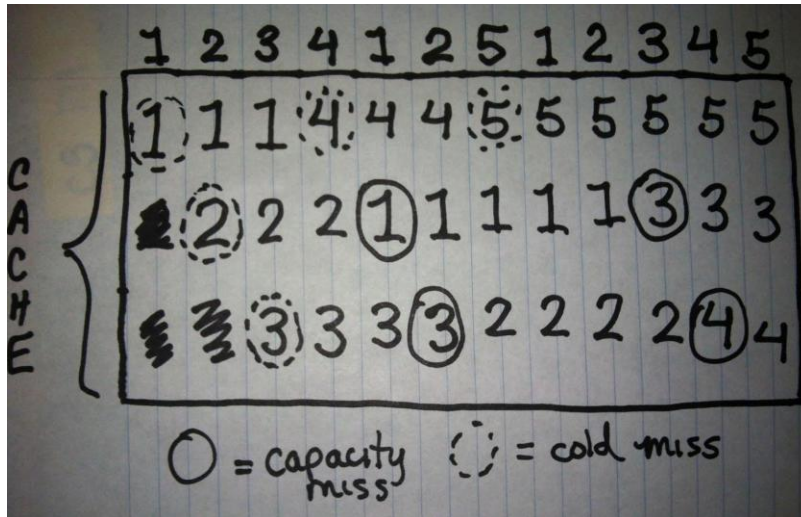 1 2 3 4 1 2 5 1 2 3 4 5
CACHE
1 1 1 4 4 4 5 5 5 5 5 5
2 2 2 1 1 1 1 1 3 3 3
3 3 3 3 2 2 2 2 4 4
= capacity miss
= cold miss